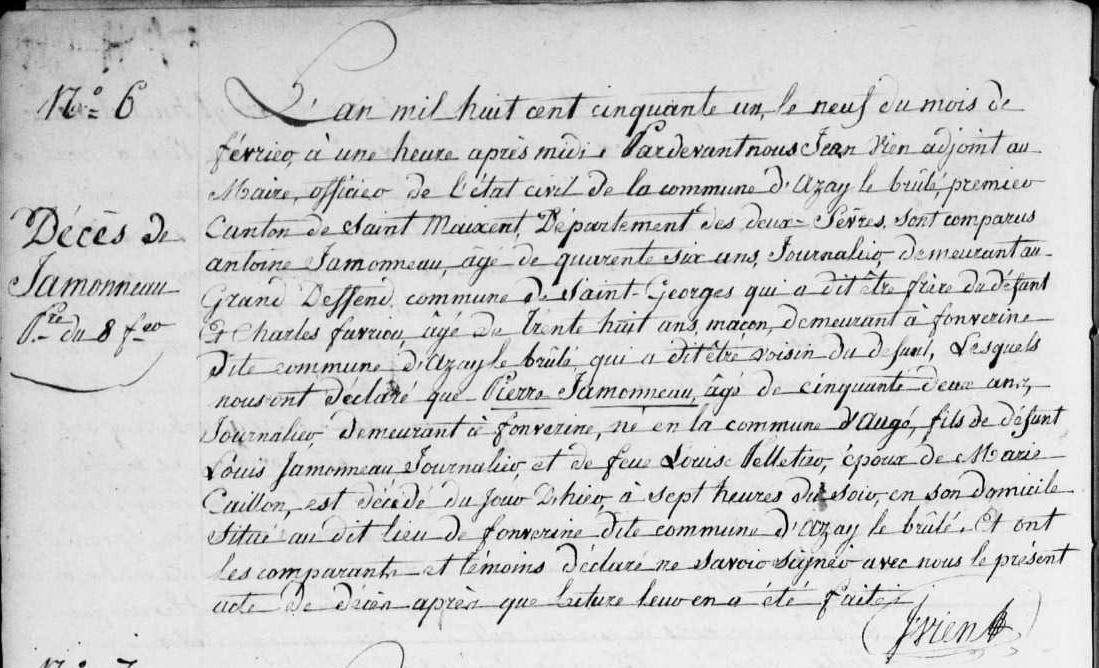 N° 6
Décès de
Jamonneau
Pre du 8 feo
L'an mil huit cent cinquante un, le neuf du mois de
février, à une heure après midi, Pardevant nous Jean Vien adjoint au
Maire, officier de l'état civil de la commune d'Azay le brûlé, premier
Canton de Saint Maixent, Département des deux-Sèvres, sont comparus
antoine Jamonneau, âgé de quarente six ans, Journalier, demeurant au
Grand Deffend, commune de Saint-Georges qui a dit être frère du défunt
Et Charles farriou, âgé de trente huit ans, maçon, demeurant à fonverine
dite commune d'Azay le brûlé qui a dit être voisin du defunt, Lesquels
nous ont déclaré que Pierre Jamonneau, âgé de cinquante deux ans,
Journalier, demeurant à fonverine, né en la commune d'Augé, fils de défunt
Louis Jamonneau Journalier et de feue Louise Pelletier, époux de Marie
Caillon, est décédé du jour D'hier, à sept heures du soir, en son domicile
situé au dit lieu de fonverine dite commune d'Azay le brûlé. Et ont
les comparants et témoins déclaré ne savoir signer avec nous le présent
acte de décès après que lecture leur en a été faite.
Jvien